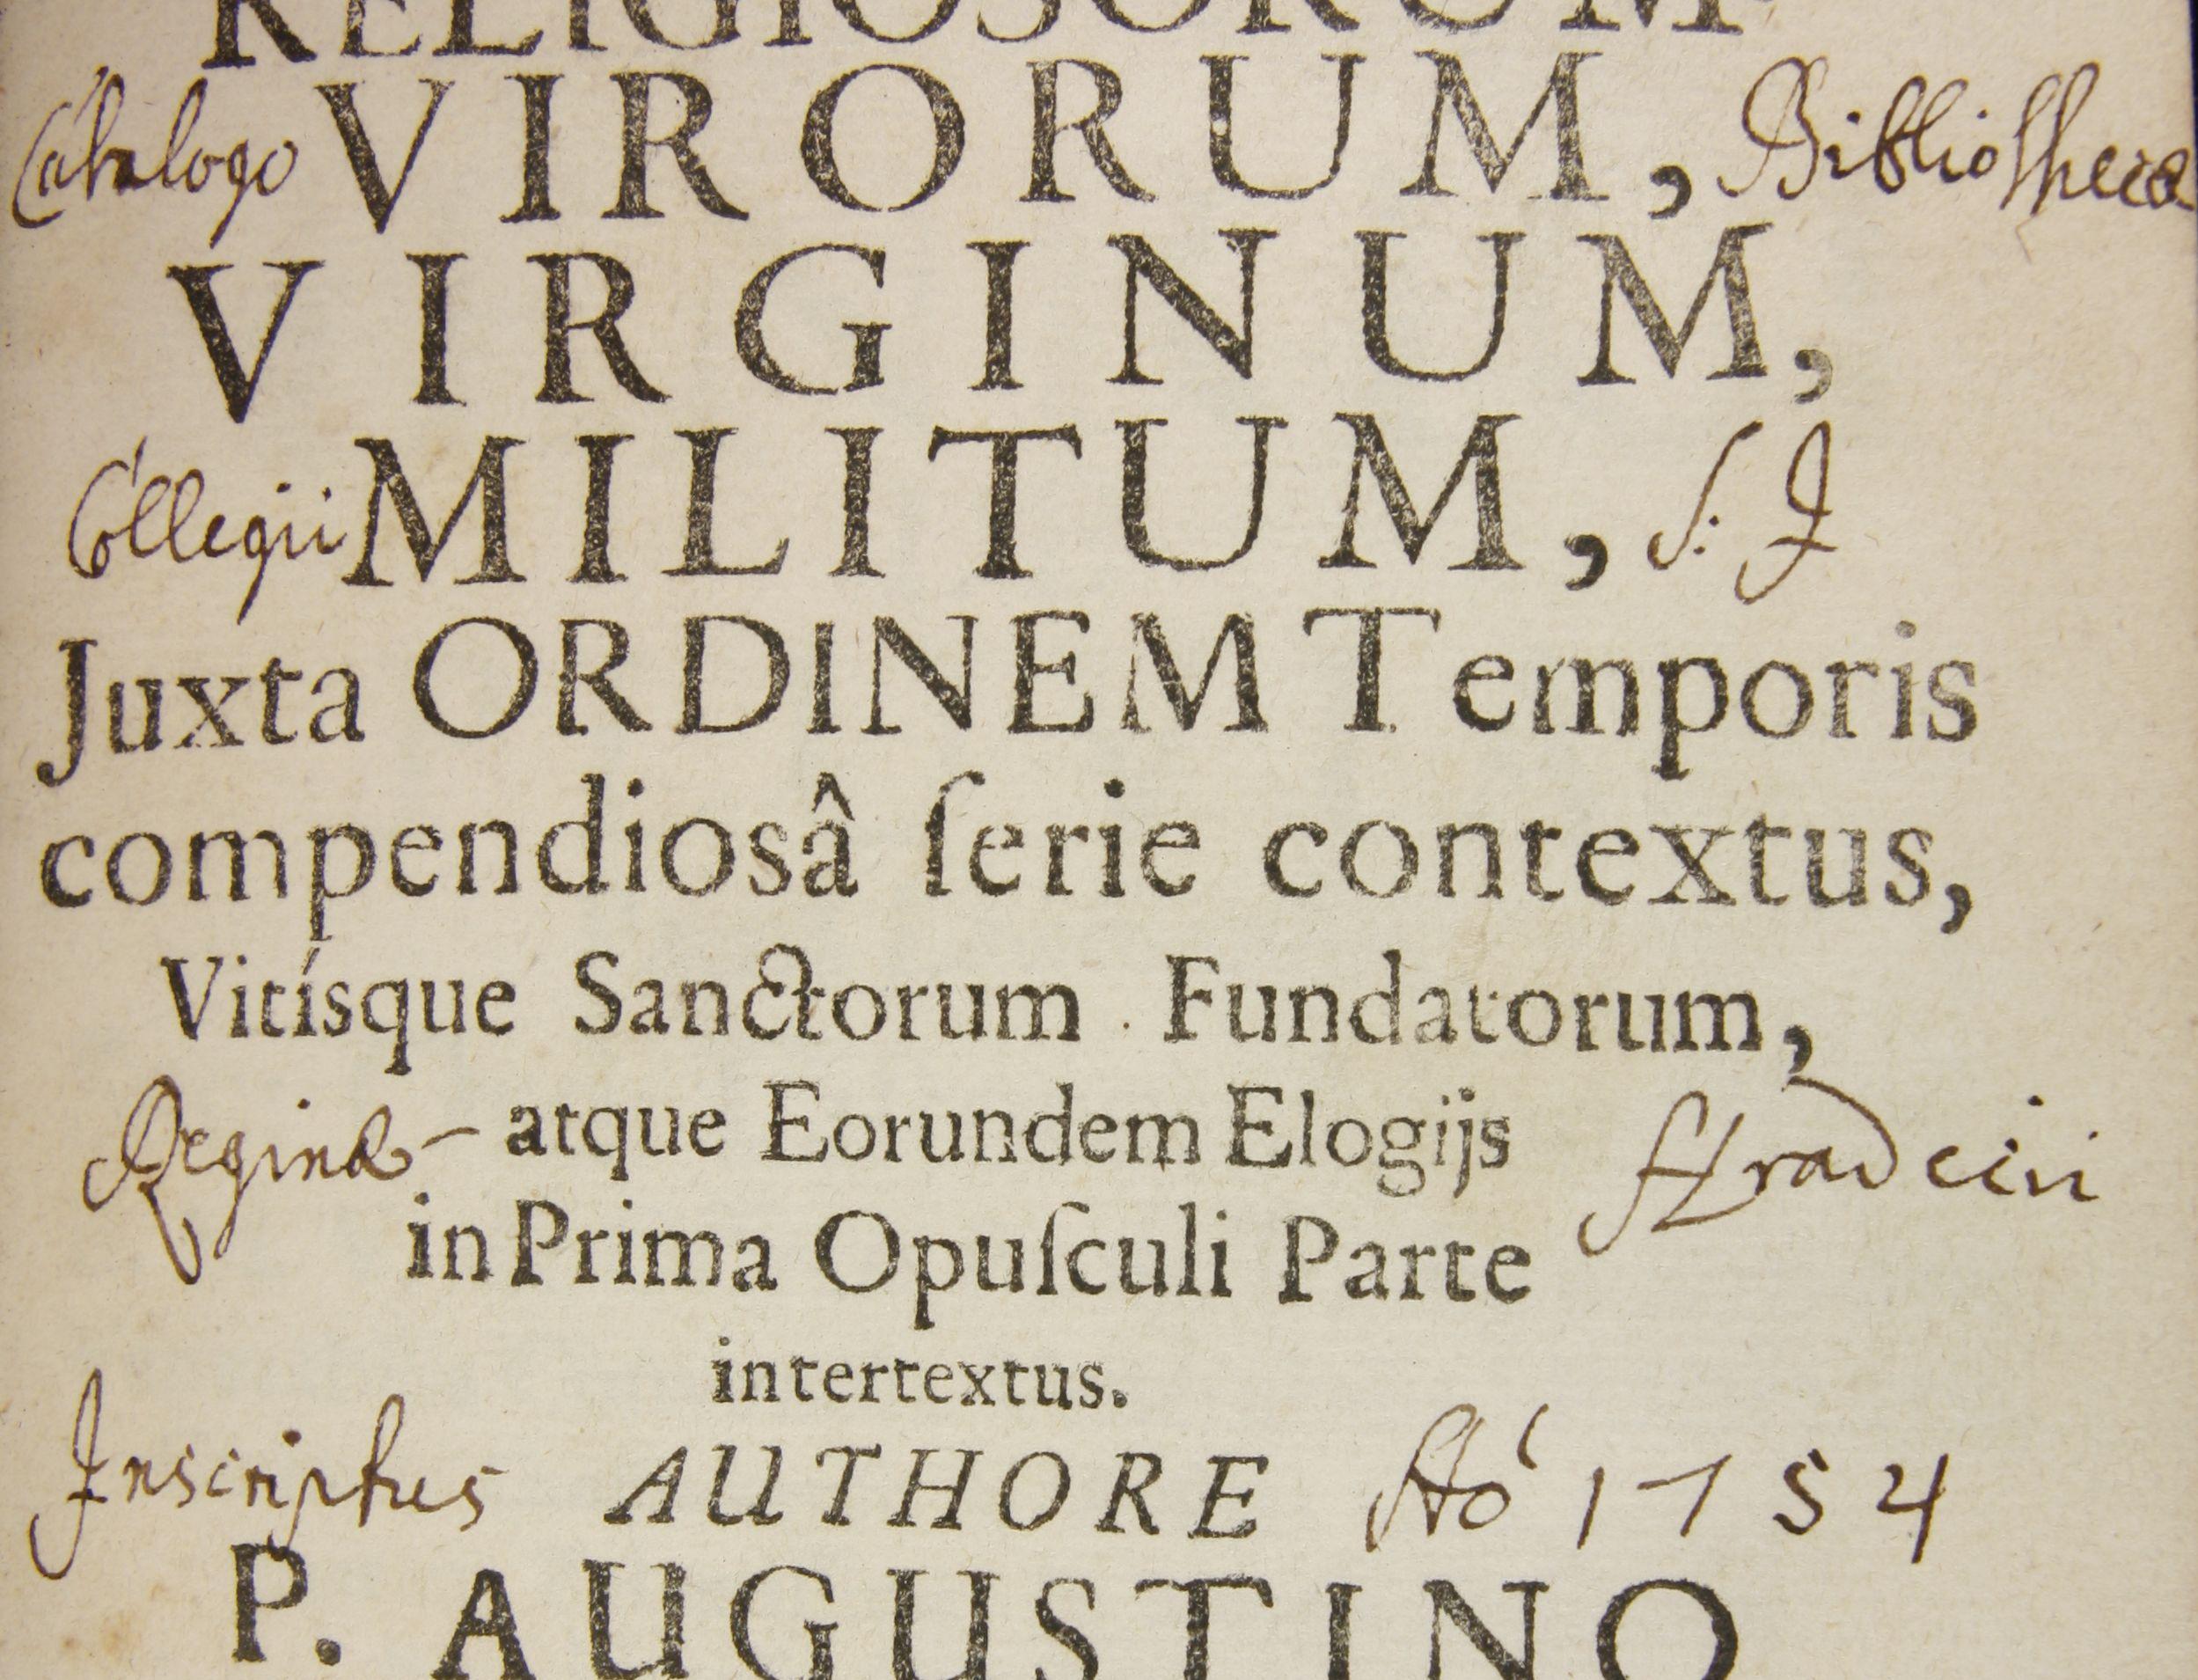 RELIGIOSORUM
Catalogo VIRORUM, Bibliothecæ
VIRGINUM,
Collegii MILITUM, S: J
Juxta ORDINEM Temporis
compendiosâ ſerie contextus,
Vitísque Sanctorum Fundatorum,
Reginæ - atque Eorundem Elogijs Hradecii
in Prima Opuſculi Parte
intertextus.
Inscriptus AUTHORE Aō 1754
P. AUGUSTINO